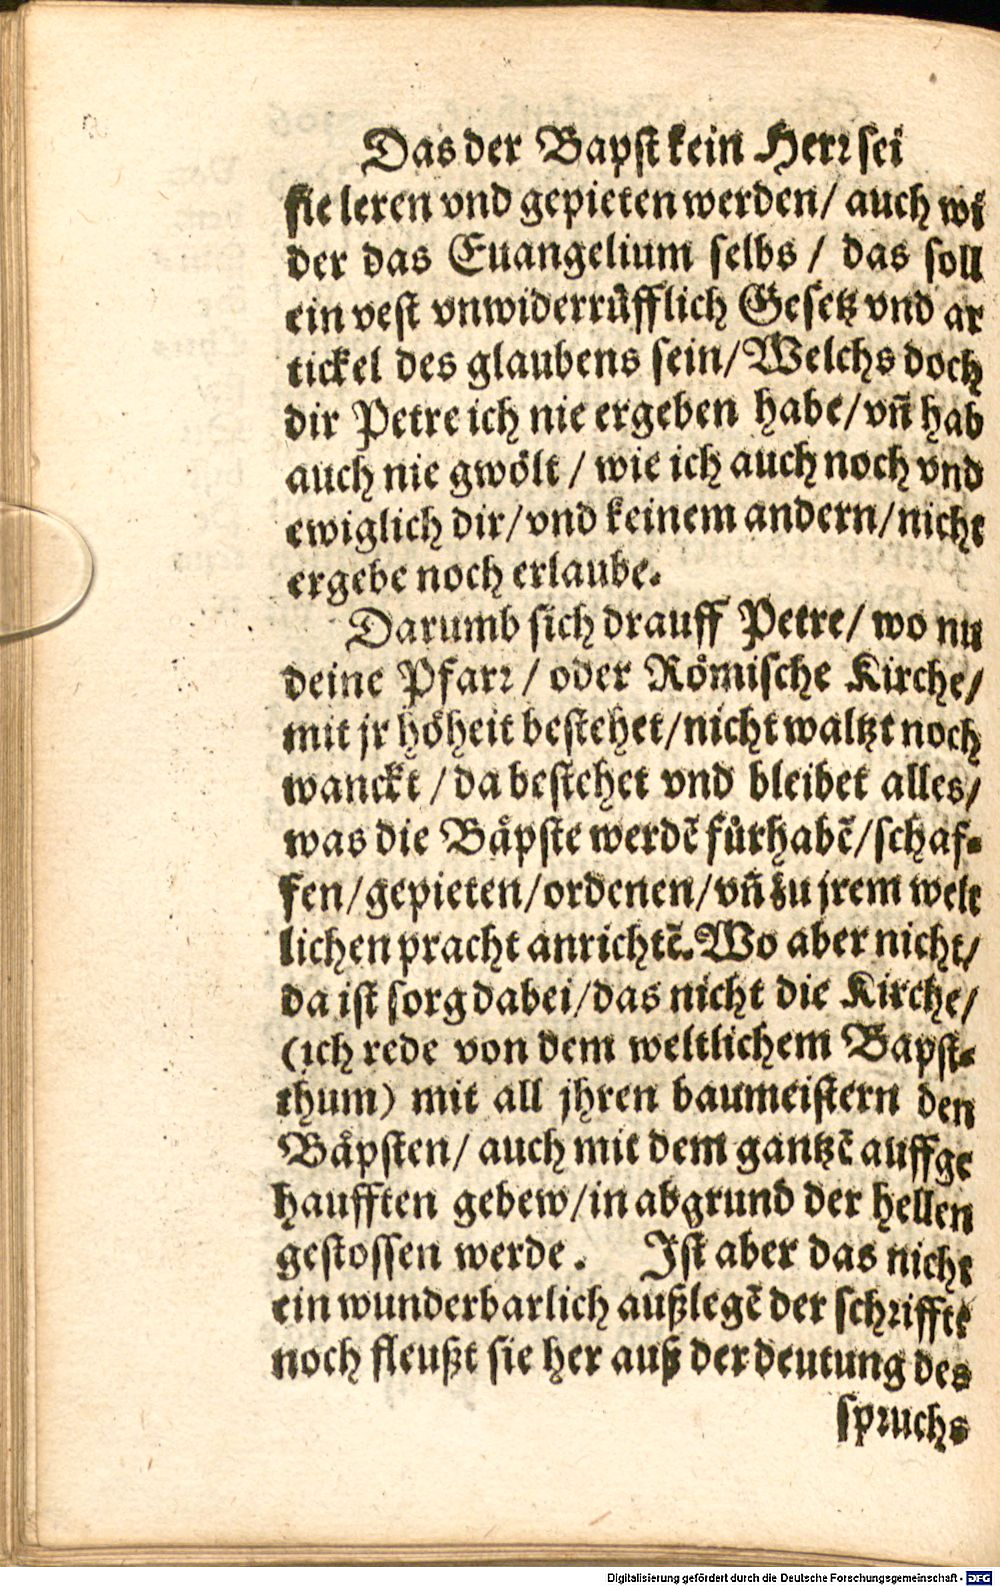 Das der Bapst kein Herr sei
sie leren vnd gepieten werden/ auch wi
der das Euangelium selbs / das soll
ein vest vnwiderrüfflich Gesetz vnd ar
tickel des glaubens sein/ Welchs doch
dir Petre ich nie ergeben habe/ vñ hab
auch nie gwölt / wie ich auch noch vnd
ewiglich dir/ vnd keinem andern/ nicht
ergebe noch erlaube.
Darumb sich drauff Petre/ wo nu
deine Pfarr / oder Römische Kirche/
mit jr höheit bestehet/ nicht waltzt noch
wanckt / da bestehet vnd bleibet alles/
was die Bäpste werdẽ fürhabẽ/ schaf-
fen/ gepieten/ ordenen/ vñ zu jrem welt
lichen pracht anrichtẽ. Wo aber nicht/
da ist sorg dabei/ das nicht die Kirche/
(ich rede von dem weltlichem Bapst-
thum) mit all jhren baumeistern den
Bäpsten/ auch mit dem gantzẽ auffge
haufften gebew/ in abgrund der hellen
gestossen werde. Ist aber das nicht
ein wunderbarlich außlegẽ der schrifft
noch fleußt sie her auß der deutung des
spruchs
Digitalisierung gefördert durch die Deutsche Forschungsgemeinschaft - DFG